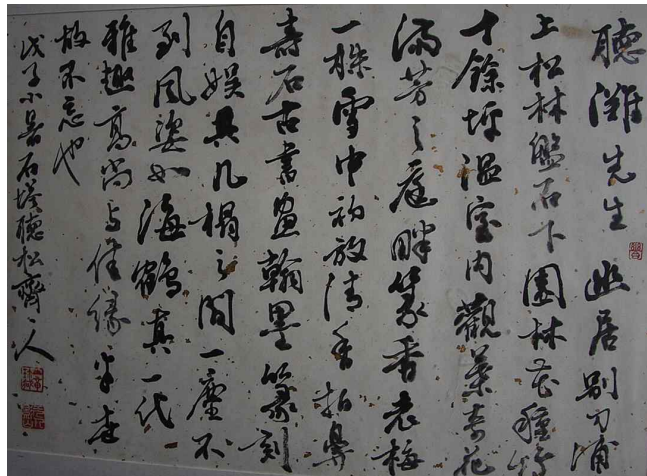 聽濰先生 幽居別
上松林盤石下園林花種
十餘坪溫室內觀葉奇花
滿芳之庭畔篆香老梅
一株雪中初放清香拍鼻
壽石古書畫翰墨篆刻
自娛其几榻之間一塵不
到風姿如海鶴真一代
雅趣高尚与佳緣
故不忘也
戊子小暑石 聽松齋人